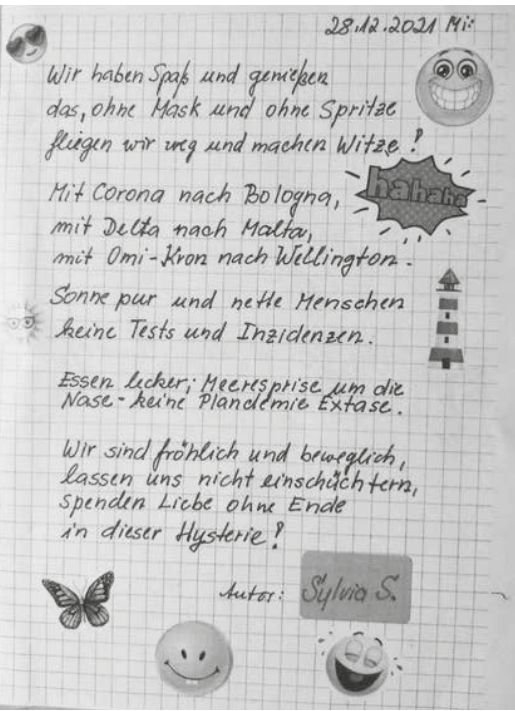 28.12.2021 Mi:
Wir haben Spaß und genießen
das, ohne Mask und ohne Spritze
fliegen wir weg und machen Witze!
hahaha
Mit Corona nach Bologna,
mit Delta nach Malta,
mit Omi-Kron nach Wellington.
Sonne pur und nette Menschen
keine Tests und Inzidenzen.
Essen lecker; Meeresprise um die
Nase - keine Plandemie Extase.
Wir sind fröhlich und beweglich,
lassen uns nicht einschüchtern,
spenden Liebe ohne Ende
in dieser Hysterie!
Autor: Sylvia S.